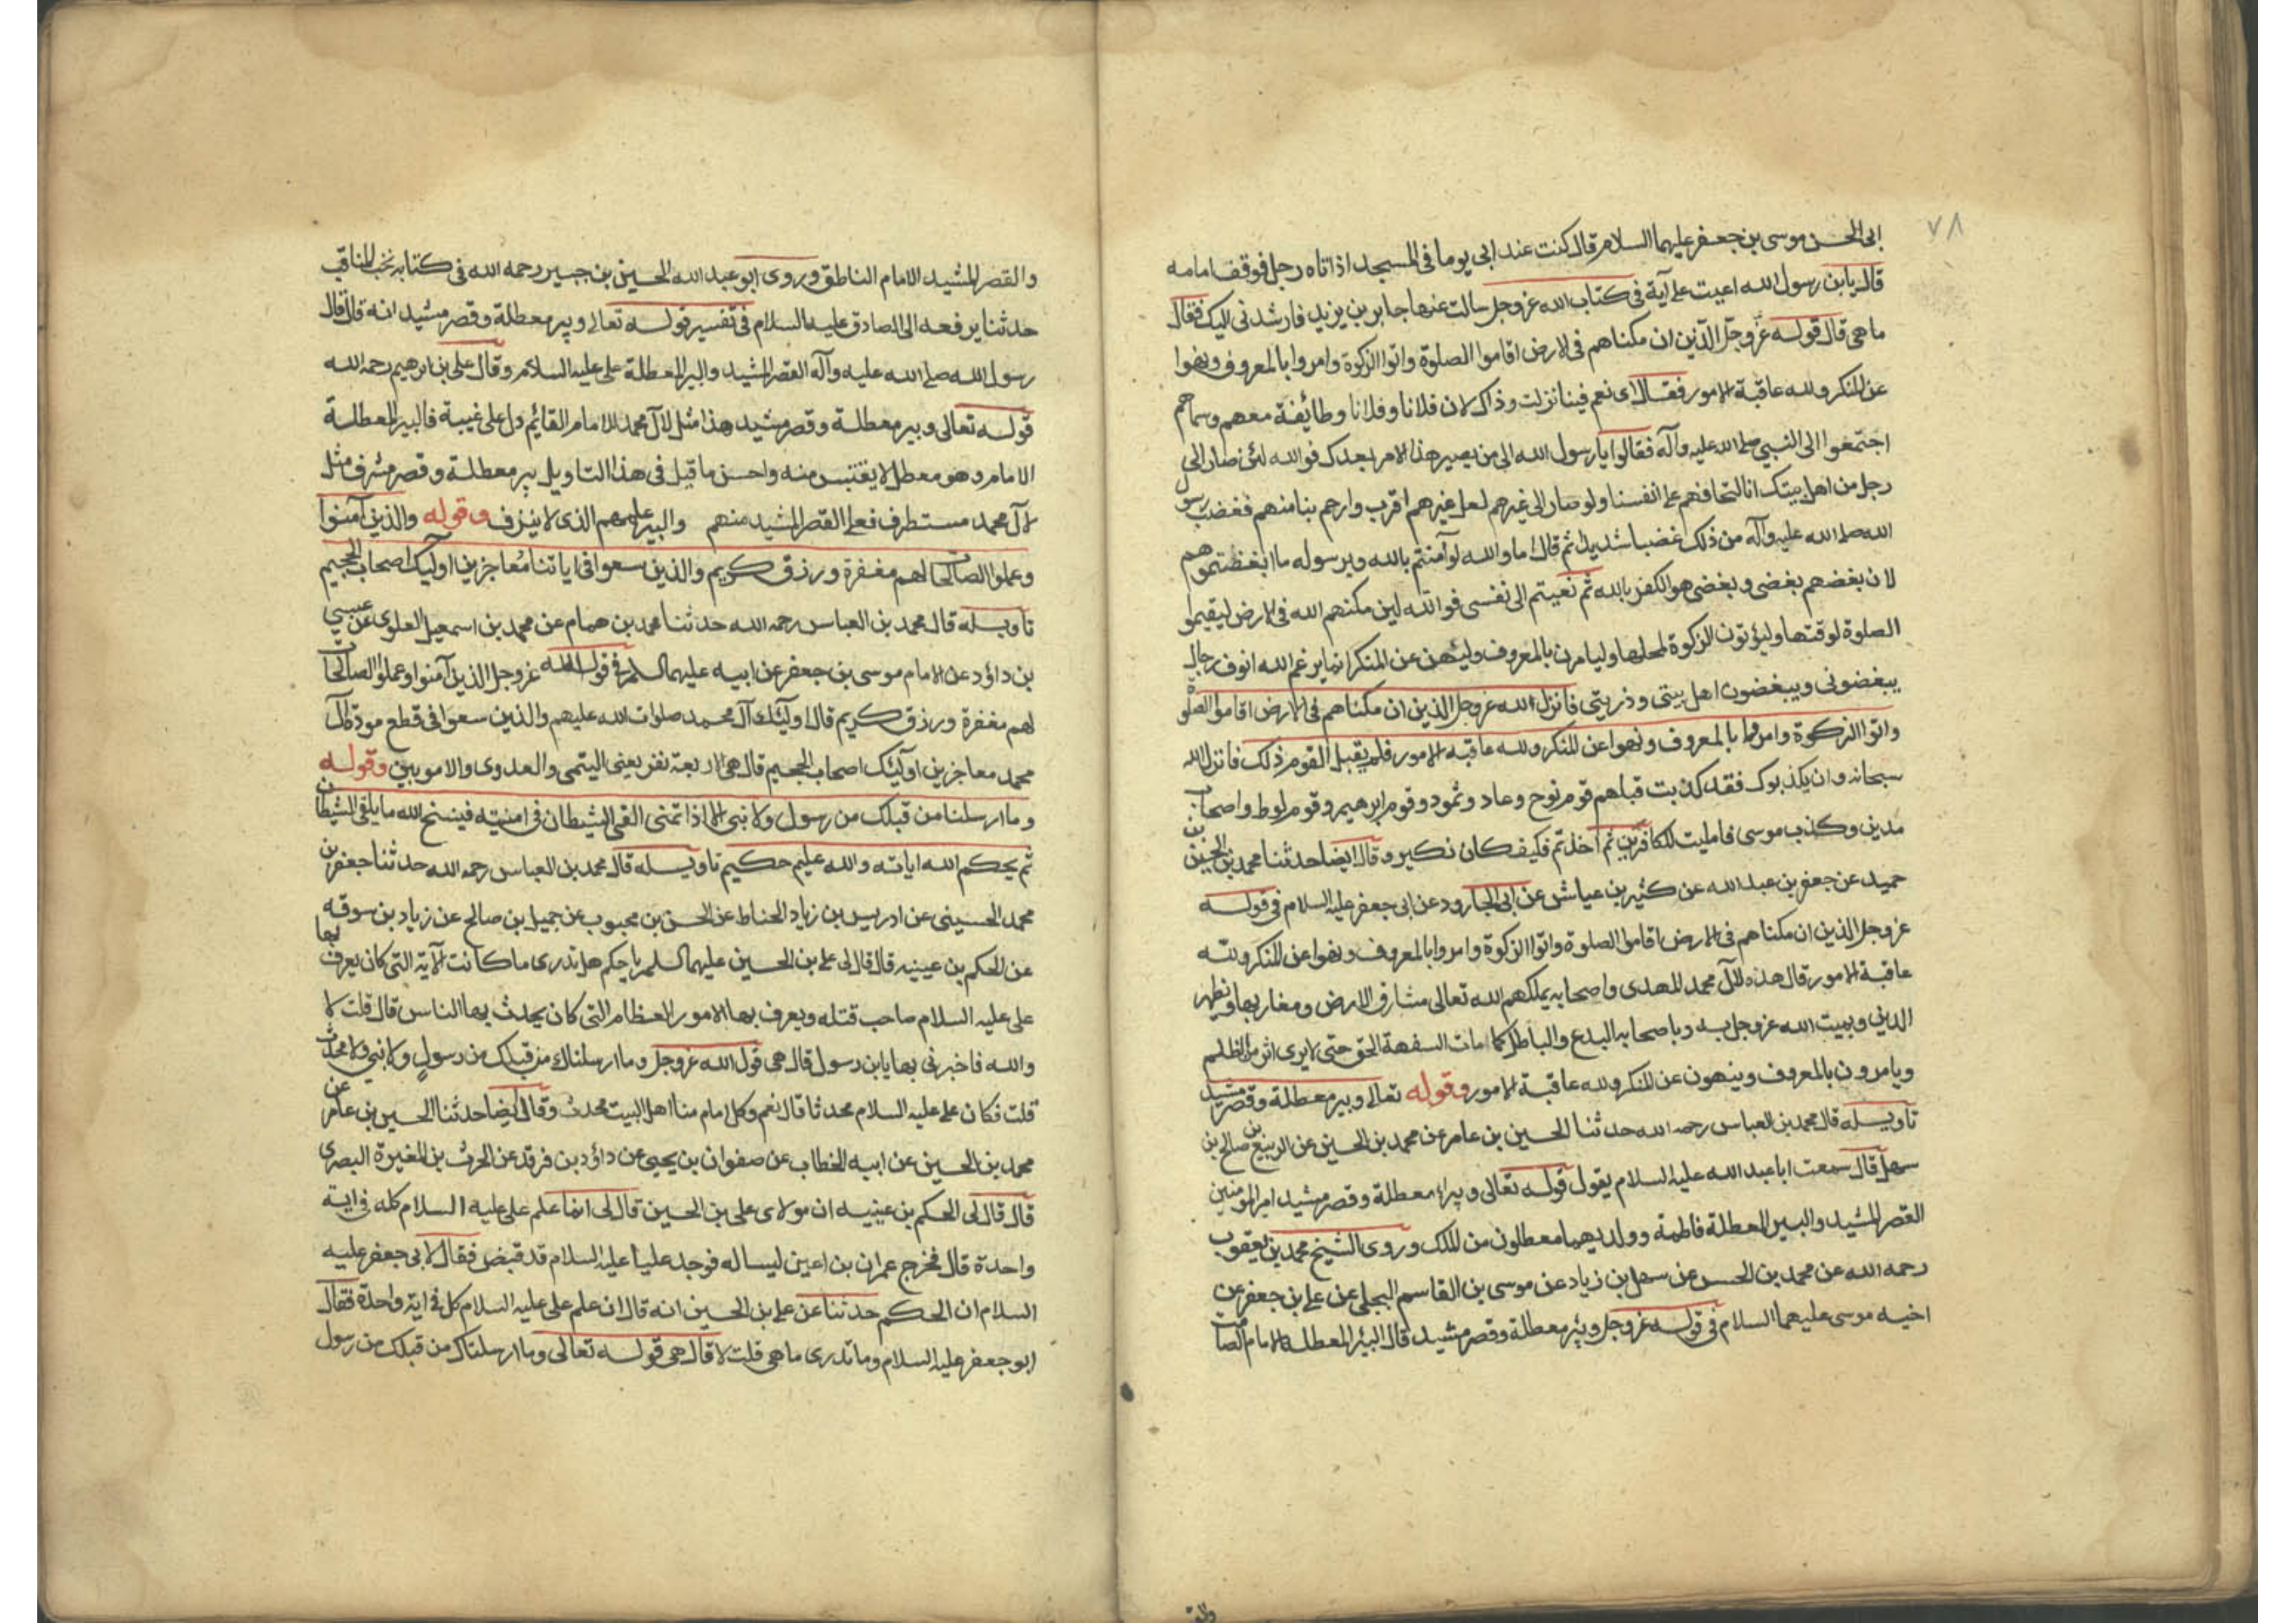 ٧٨
ابى الحسن موسى بن جعفر عليهما السلام قال كنت عند ابى يوما فى المسجد اذ اتاه رجل فوقف امامه
قال يابن رسول الله اعيت على آية فى كتاب الله عز وجل سالت عنها جابر بن يزيد فارشدنى اليك فقال
ما هى قال قوله عز وجل الذين ان مكناهم فى الارض اقاموا الصلوة واتوا الزكوة وامروا بالمعروف ونهوا
عن المنكر ولله عاقبة الامور فقال اى نعم فينا نزلت وذاك لان فلانا وفلانا وطائفة معهم وسماهم
اجتمعوا الى النبي صلى الله عليه وآله فقالوا يا رسول الله الى من يصير هذا الامر بعدك فوالله لئن صار الى
رجل من اهل بيتك انا لنخافهم على انفسنا ولو صار الى غيرهم لعل غيرهم اقرب وارحم بنا منهم فغضب رسول
الله صلى الله عليه وآله من ذلك غضبا شديدا ثم قال اما والله لو آمنتم بالله وبرسوله ما ابغضتموهم
لان بغضهم بغضى وبغضى هو الكفر بالله ثم نعيتم الى نفسى فوالله لين مكنهم الله فى الارض ليقيموا
الصلوة لوقتها وليؤتون الزكوة لمحلها وليامرن بالمعروف ولينهن عن المنكر انما يرغم الله انوف رجال
يبغضونى ويبغضون اهل بيتى وذريتى فانزل الله عز وجل الذين ان مكناهم فى الارض اقاموا الصلوة
واتوا الزكوة وامروا بالمعروف ونهوا عن المنكر ولله عاقبة الامور فلم يقبل القوم ذلك فانزل الله
سبحانه وان يكذبوك فقد كذبت قبلهم قوم نوح وعاد وثمود وقوم ابرهيم وقوم لوط واصحاب
مدين وكذب موسى فامليت للكافرين ثم اخذتم فكيف كان نكير وقال ايضا حدثنا محمد بن الحسين بن
حميد عن جعفر بن عبد الله عن كثير بن عياش عن ابى الجارود عن ابى جعفر عليه السلام فى قوله
عز وجل الذين ان مكناهم فى الارض اقاموا الصلوة واتوا الزكوة وامروا بالمعروف ونهوا عن المنكر ولله
عاقبة الامور قال هذه لآل محمد المهدى واصحابه يملكهم الله تعالى مشارق الارض ومغاربها ويظهر
الدين ويميت الله عز وجل به وباصحابه البدع والباطل كما امات السفهة الحق حتى لا يرى اثر من الظلم
ويامرون بالمعروف وينهون عن المنكر ولله عاقبة الامور وقوله تعالى وبير معطلة وقصر مشيد
تاويله قال محمد بن العباس رحمه الله حدثنا الحسين بن عامر عن محمد بن الحسين عن الربيع بن صالح بن
سهل قال سمعت ابا عبد الله عليه السلام يقول قوله تعالى وبير معطلة وقصر مشيد امير المؤمنين
القصر المشيد والبير المعطلة فاطمة وولديهما معطلون من الملك وروى الشيخ محمد بن يعقوب
رحمه الله عن محمد بن الحسن عن سهل بن زياد عن موسى بن القاسم البجلى عن على بن جعفر عن
اخيه موسى عليهما السلام فى قوله عز وجل وبئر معطلة وقصر مشيد قال البئر المعطلة الامام الصامت
والقصر المشيد الامام الناطق وروى ابو عبد الله الحسين بن جبير رحمه الله فى كتابه نخب المناقب
حدثنا يرفعه الى الصادق عليه السلام فى تفسير قوله تعالى وبير معطلة وقصر مشيد انه قال قال
رسول الله صلى الله عليه وآله القصر المشيد والبير المعطلة على عليه السلام وقال على بن ابرهيم رحمه الله
قوله تعالى وبير معطلة وقصر مشيد هذا مثل لآل محمد للامام القائم ول على غيبة فالبير المعطلة
الامام وهو معطل لا يقتبس منه واحسن ما قيل فى هذا التاويل بير معطلة وقصر مشرف مثل
لآل محمد مستطرف فعلى القصر المشيد منهم والبير علمهم الذى لا ينزف وقوله والذين آمنوا
وعملوا الصالحات لهم مغفرة ورزق كريم والذين سعوا فى اياتنا معاجزين اوليك اصحاب الجحيم
تاويله قال محمد بن العباس رحمه الله حدثنا محمد بن همام عن محمد بن اسمعيل العلوى عن عيسى
بن داؤد عن الامام موسى بن جعفر عن ابيه عليهما السلم فى قول الله عز وجل الذين آمنوا وعملوا الصالحات
لهم مغفرة ورزق كريم قال اوليك آل محمد صلوات الله عليهم والذين سعوا فى قطع مودة آل
محمد معاجزين اوليك اصحاب الجحيم قال هى الاربعة نفر يعنى التيمى والعدوى والامويين وقوله
وما ارسلنا من قبلك من رسول ولا نبى الا اذا تمنى القى الشيطان فى امنيته فينسخ الله ما يلقى الشيطان
ثم يحكم الله اياته والله عليم حكيم تاويله قال محمد بن العباس رحمه الله حدثنا جعفر بن
محمد الحسينى عن ادريس بن زياد الحناط عن الحسن بن محبوب عن جميل بن صالح عن زياد بن سوقه
عن الحكم بن عيينه قال قال لى على بن الحسين عليهما السلم يا حكم هل تدرى ما كانت الآية التى كان يعرف بها
على عليه السلام صاحب قتله ويعرف بها الامور العظام التى كان يحدث بها الناس قال قلت لا
والله فاخبرنى بها يابن رسول قال هى قول الله عز وجل وما ارسلناك من قبلك من رسول ولا نبى ولا محدث
قلت فكان على عليه السلام محدثا قال نعم وكل امام منا اهل البيت محدث وقال ايضا حدثنا الحسين بن عامر عن
محمد بن الحسين عن ابيه الخطاب عن صفوان بن يحيى عن داؤد بن فرقد عن الحرث بن المغيرة البصرى
قال قال لى الحكم بن عيينه ان مولاى على بن الحسين قال لى انما علم على عليه السلام كله فى اية
واحدة قال فخرج عمران بن اعين ليساله فوجد عليا عليه السلام قد قبض فقال لابى جعفر عليه
السلام ان الحكم حدثنا عن على بن الحسين انه قال ان علم على عليه السلام كل فى اية واحدة فقال
ابو جعفر عليه السلام وما تدرى ما هى قلت لا قال هى قوله تعالى وما ارسلناك من قبلك من رسول